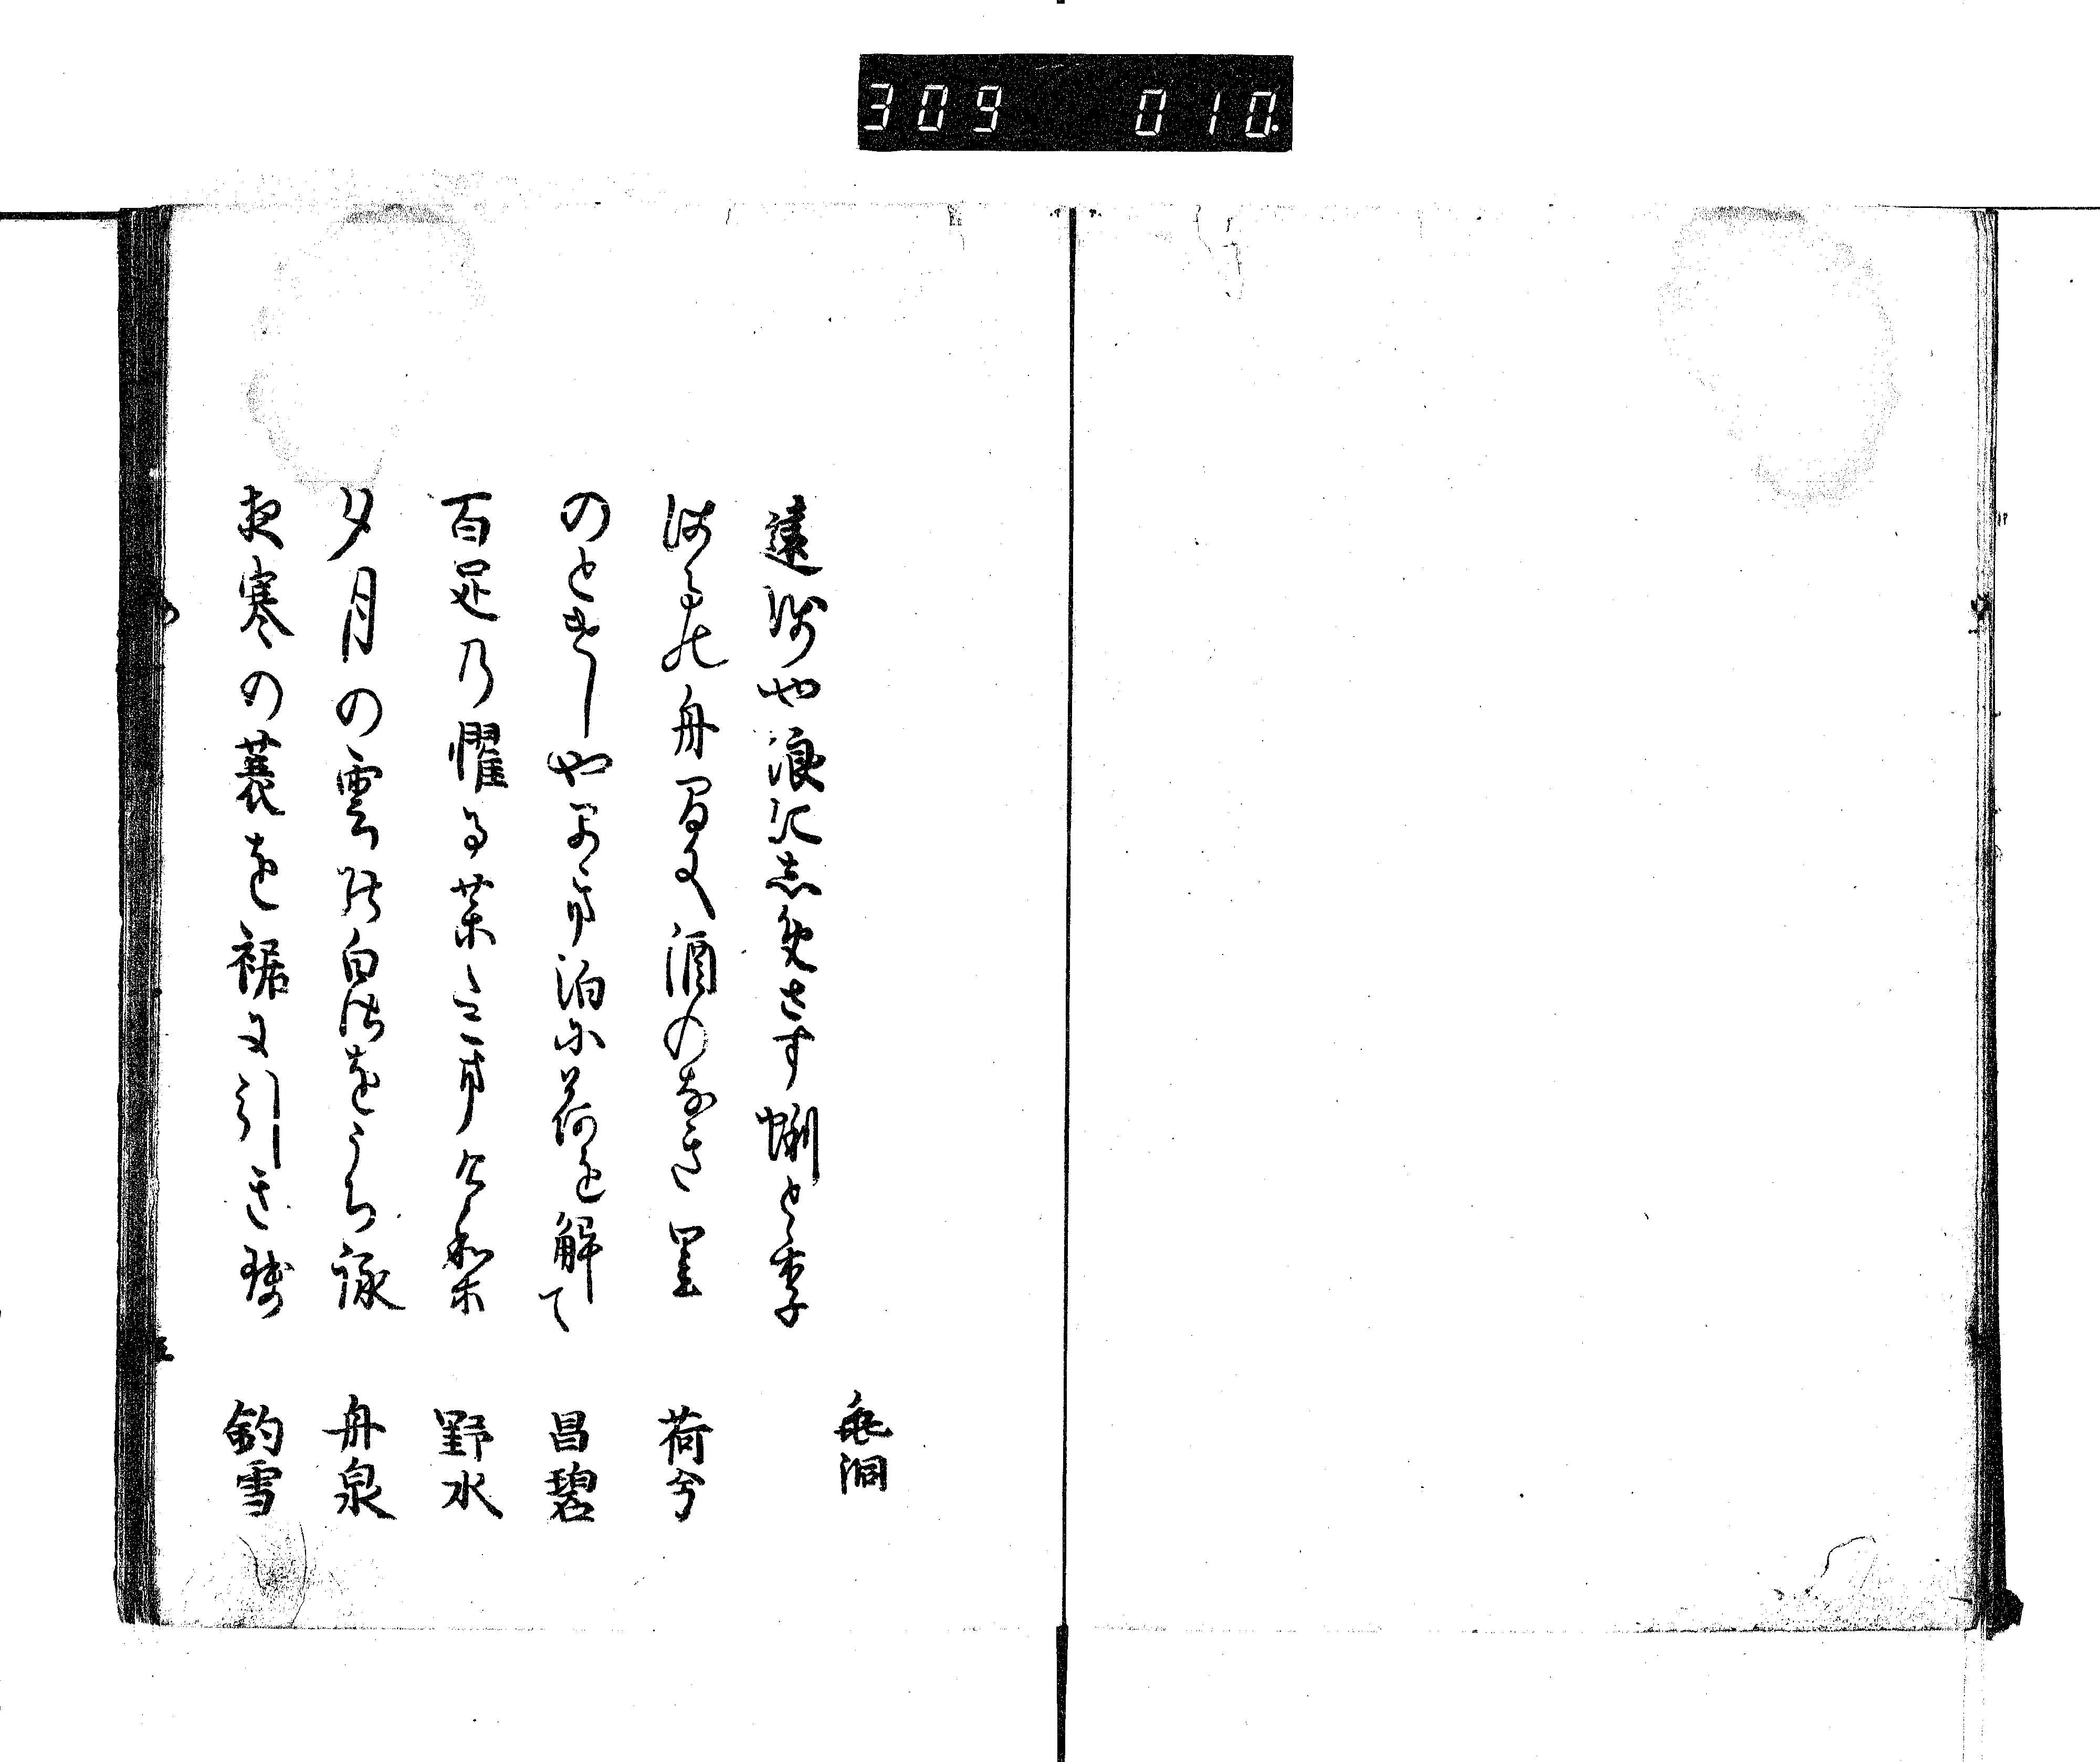 309 010
亀洞
遠浅や浪に志めさす蜊とり
はるの舟間に酒のなき里
荷兮
のとけしや早き泊に荷を解て
昌碧
百足の懼る薬たきけり
野水
夕月の雲の白さをうち詠
舟泉
夜寒の蓑を裾に引きせ
釣雪